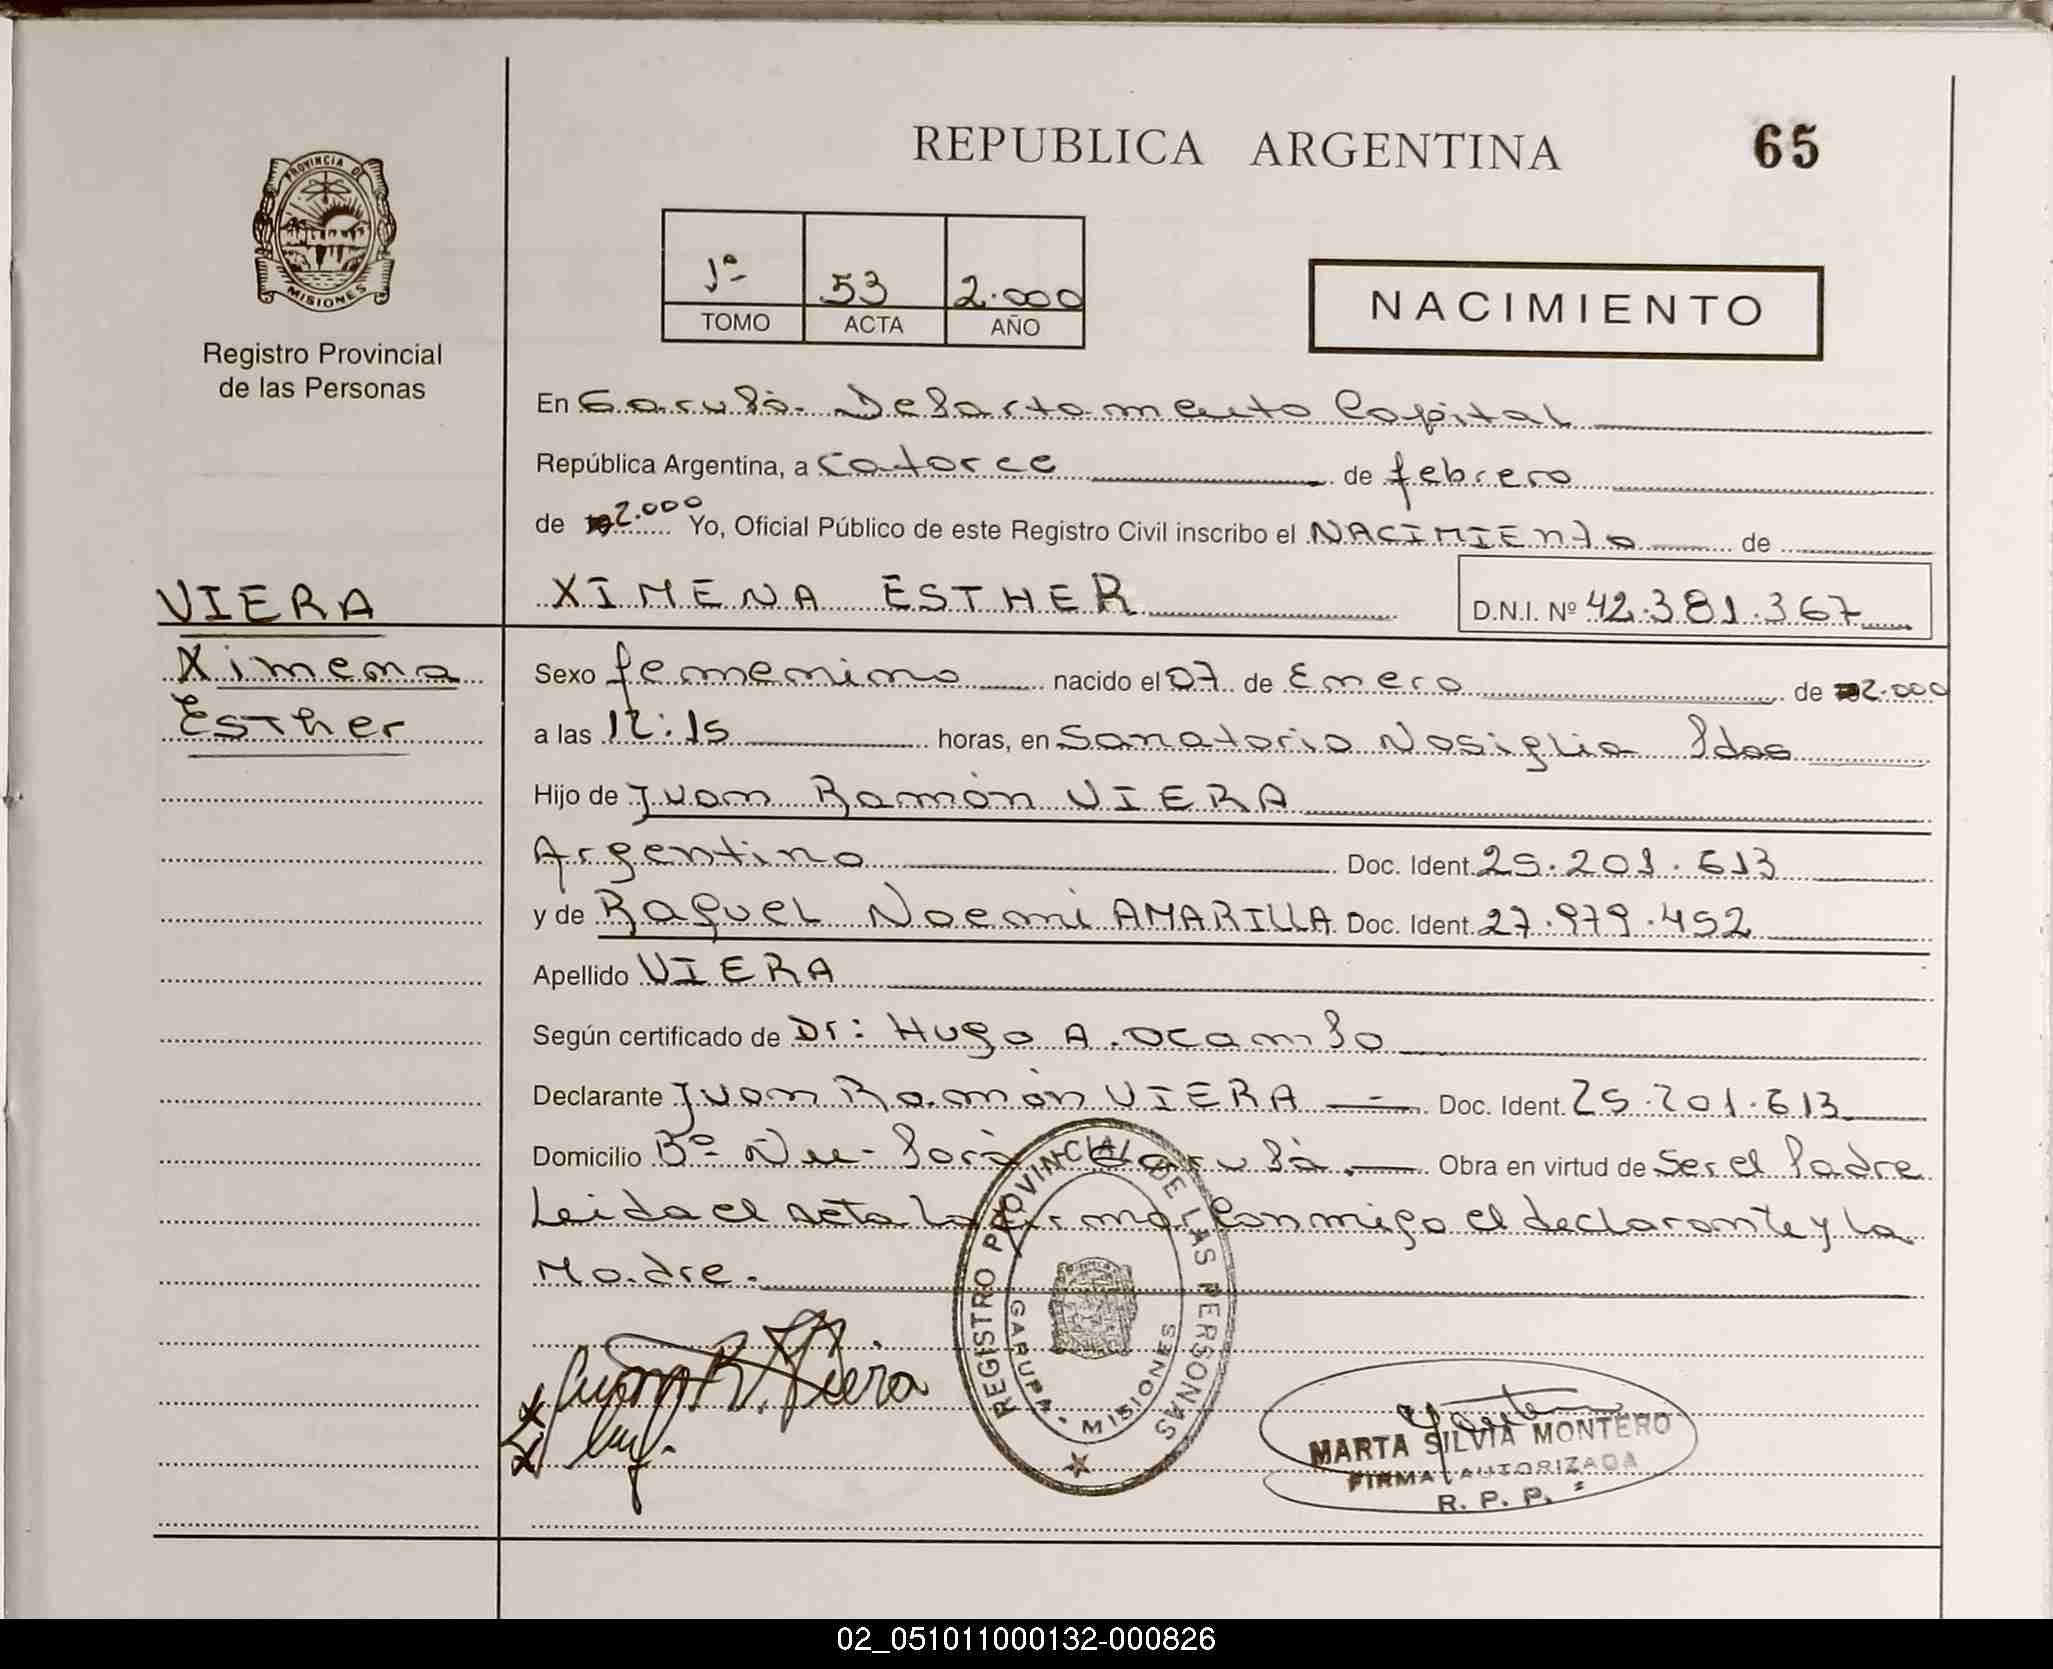 REPUBLICA ARGENTINA
65
PROVINCIA DE
MISIONES
Registro Provincial
de las Personas
1º 53 2.000
TOMO ACTA AÑO
NACIMIENTO
En Garupá. Departamento Capital
República Argentina, a catorce de febrero
de 2.000 Yo, Oficial Público de este Registro Civil inscribo el NACIMIENTO de
XIMENA ESTHER D.N.I. Nº 42.381.367
VIERA
Ximena
Esther
Sexo femenino nacido el 07 de Enero de 2.000
a las 12:15 horas, en Sanatorio Nosiglia Pdas
Hijo de Juan Ramón VIERA
Argentino Doc. Ident. 25.201.613
y de Raquel Noemi AMARILLA Doc. Ident. 27.979.452
Apellido VIERA
Según certificado de Dr: Hugo A. Ocampo
Declarante Juan Ramón VIERA Doc. Ident. 25.201.613
Domicilio Bº Ñu-Porá Garupá. Obra en virtud de Ser el Padre
Leida el acta la firman conmigo el declarante y la
Madre.
REGISTRO PROVINCIAL DE LAS PERSONAS
GARUPA - MISIONES
Juan R. Viera
MARTA SILVIA MONTERO
FIRMA AUTORIZADA
R. P. P.
02_051011000132-000826